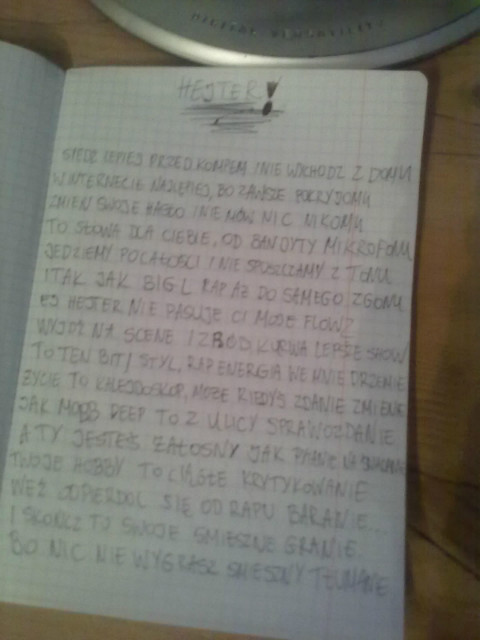 DIGITAL
HEJTER!
SIEDŹ LEPIEJ PRZED KOMPEM I NIE WYCHODŹ Z DOMU
W INTERNECIE NAJLEPIEJ, BO ZAWSZE PO KRYJOMU
ZMIEŃ SWOJE HASŁO I NIE MÓW NIC NIKOMU
TO SŁOWA DLA CIEBIE, OD BANDYTY MIKROFONU
JEDZIEMY PO CAŁOŚCI I NIE SPUSZCZAMY Z TONU
I TAK JAK BIG L RAP AŻ DO SAMEGO ZGONU
EJ HEJTER NIE PASUJE CI MOJE FLOW?
WYJDŹ NA SCENE I ZRÓB KURWA LEPSZE SHOW
TO TEN BIT, STYL, RAP ENERGIA WE MNIE DRZEMIE
ŻYCIE TO KALEJDOSKOP, MOŻE KIEDYŚ ZDANIE ZMIENIE
JAK MOBB DEEP TO Z ULICY SPRAWOZDANIE
A TY JESTEŚ ŻAŁOSNY JAK PYTANIE NA
TWOJE HOBBY TO CIĄGŁE KRYTYKOWANIE
WEŹ ODPIERDOL SIĘ OD RAPU BARANIE...
I SKOŃCZ TO SWOJE ŚMIESZNE GRANIE
BO NIC NIE WYGRASZ ŚMIESZNY TŁUMANIE